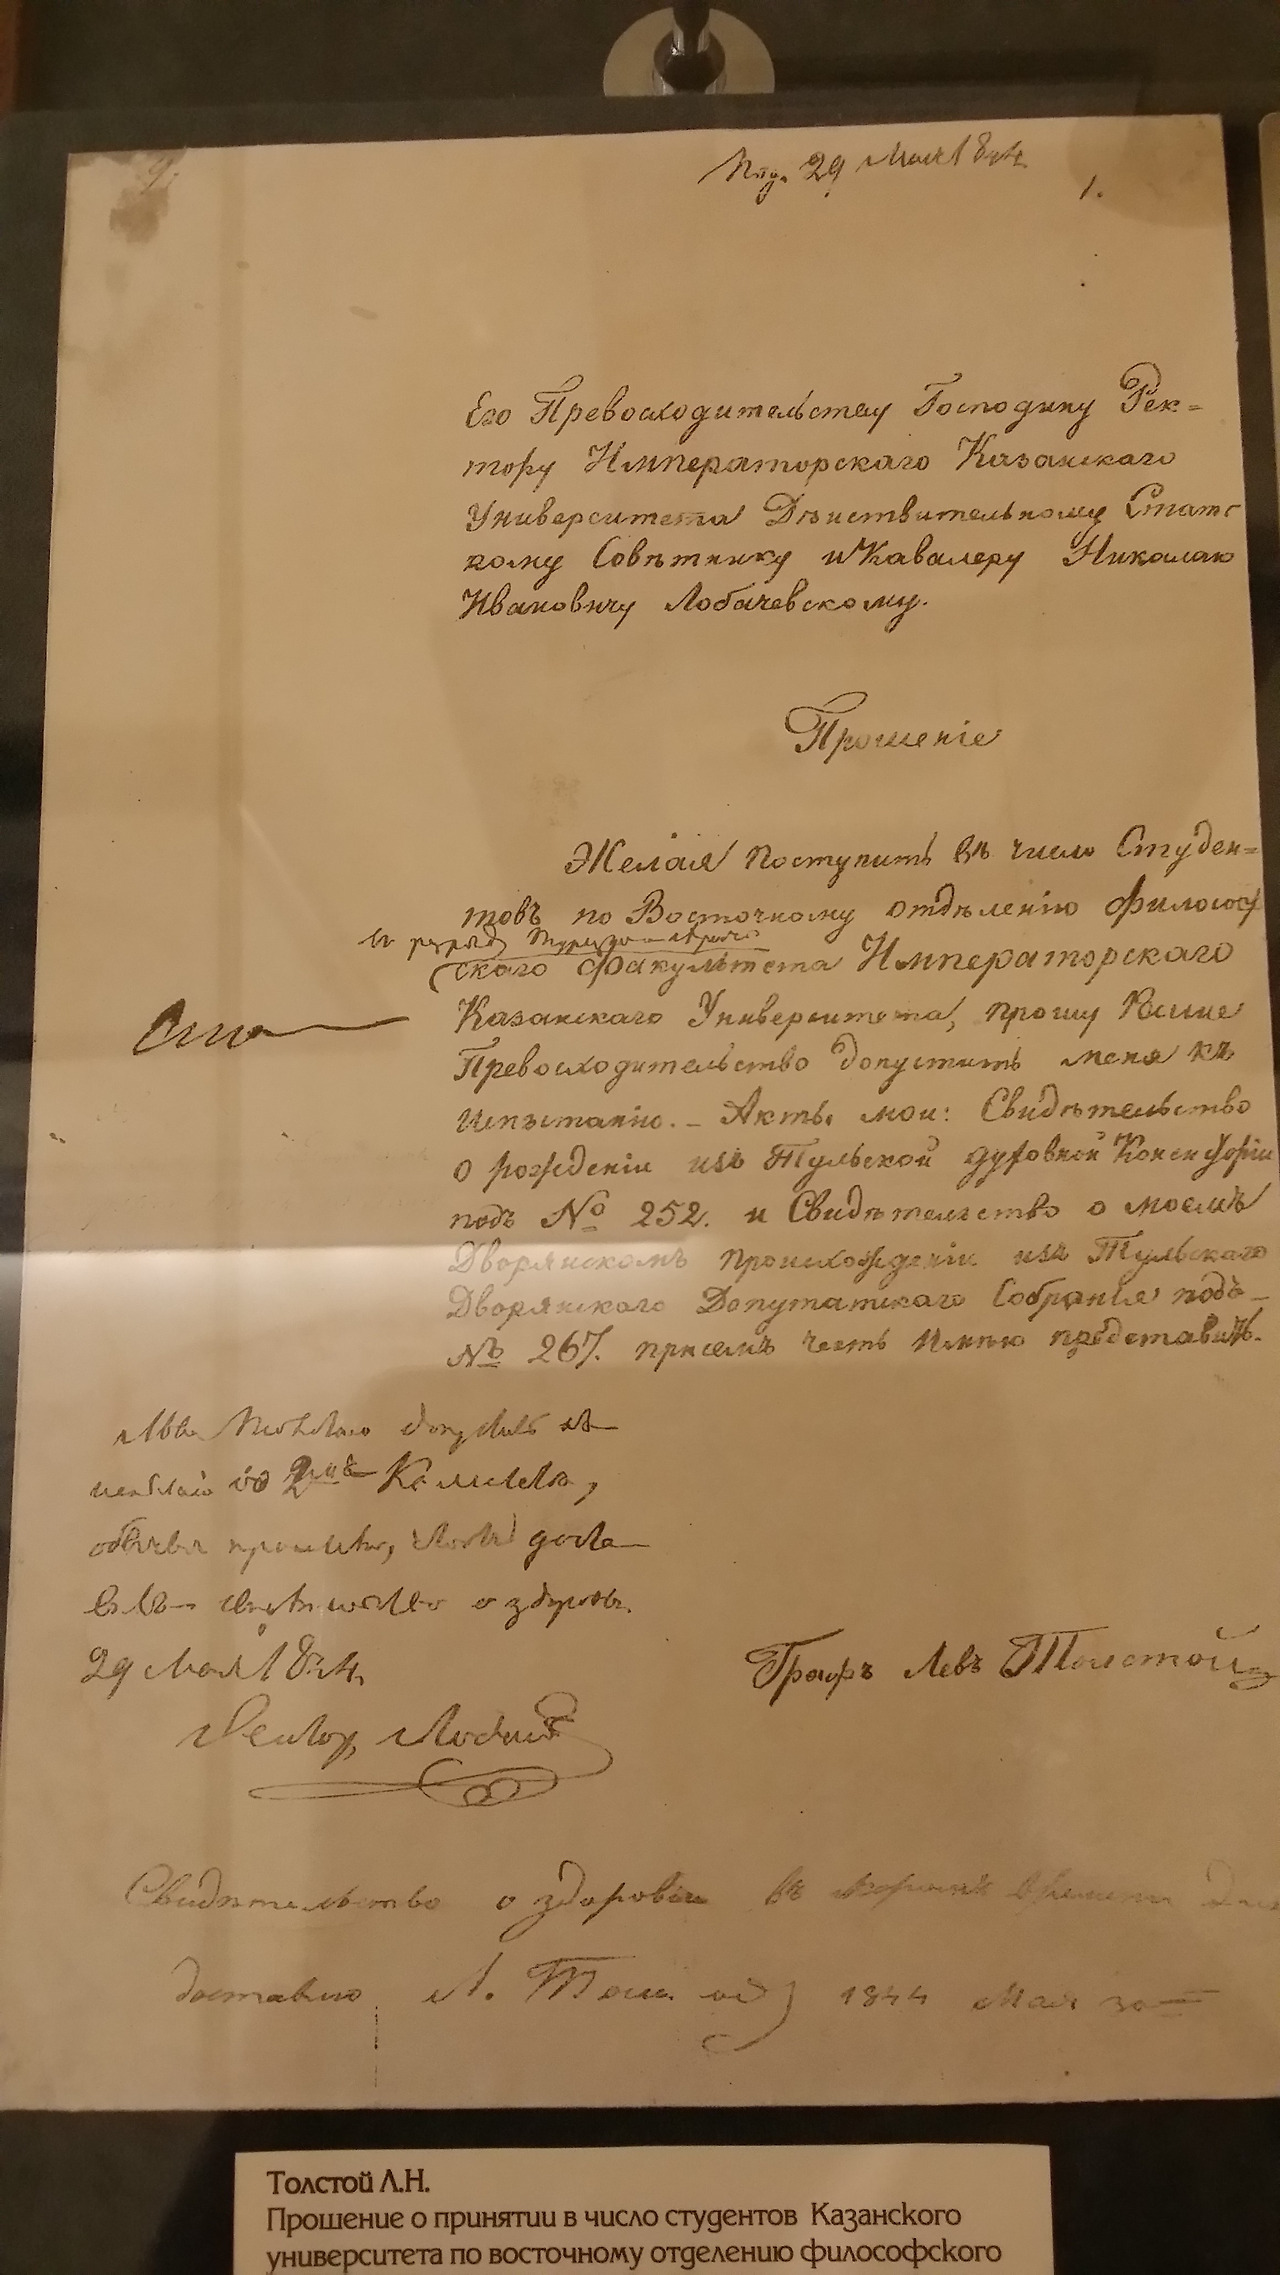 29 Мая 1844
1.
Его Превосходительству Господину Рек=
тору Императорскаго Казанскаго
Университета Дѣйствительному Статс
кому Совѣтнику и Кавалеру Николаю
Ивановичу Лобачевскому.
Прошеніе
Желая поступить въ число Студен=
товъ по Восточному отдѣленію Философ
скаго факультета Императорскаго
Казанскаго Университета, прошу Ваше
Превосходительство допустить меня къ
испытанію. – Акты мои: Свидѣтельство
о рожденіи изъ Тульской духовной Консисторіи
подъ № 252. и Свидѣтельство о моемъ
Дворянскомъ происхожденіи изъ Тульскаго
Дворянскаго Депутатскаго Собранія подъ
№ 267. при семъ честь имѣю представить.
о здоровьи
29 Мая 1844
Графъ Левъ Толстой
Ректоръ
Свидѣтельство о здоровьи въ времени
доставлю Л. Толстой 1844 Мая 30
Толстой Л.Н.
Прошение о принятии в число студентов Казанского
университета по восточному отделению философского